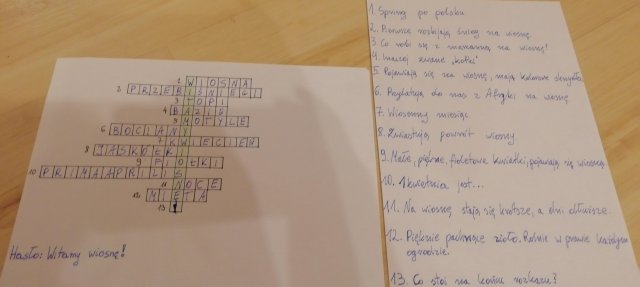 1 WIOSNA
2 PRZEBIŚNIEGI
3 TOPI
4 BAZIE
5 MOTYLE
6 BOCIANY
7 KWIECIEŃ
8 JASKÓŁKI
9 FIOŁKI
10 PRIMAAPRILIS
11 NOCE
12 MIĘTA
13 !
Hasło: Witamy wiosnę!
1. Spring po polsku
2. Pierwsze rozbijają śnieg na wiosnę
3. Co robi się z marzanną na wiosnę?
4. Inaczej zwane "kotki"
5. Pojawiają się na wiosnę, mają kolorowe skrzydła
6. Przylatują do nas z Afryki na wiosnę
7. Wiosenny miesiąc
8. Zwiastują powrót wiosny
9. Małe, piękne, fioletowe kwiatki, pojawiają się wiosną.
10. 1 kwietnia jest...
11. Na wiosnę stają się krótsze, a dni dłuższe.
12. Pięknie pachnące zioło. Rośnie w prawie każdym
ogrodzie.
13. Co stoi na końcu rozkazu?